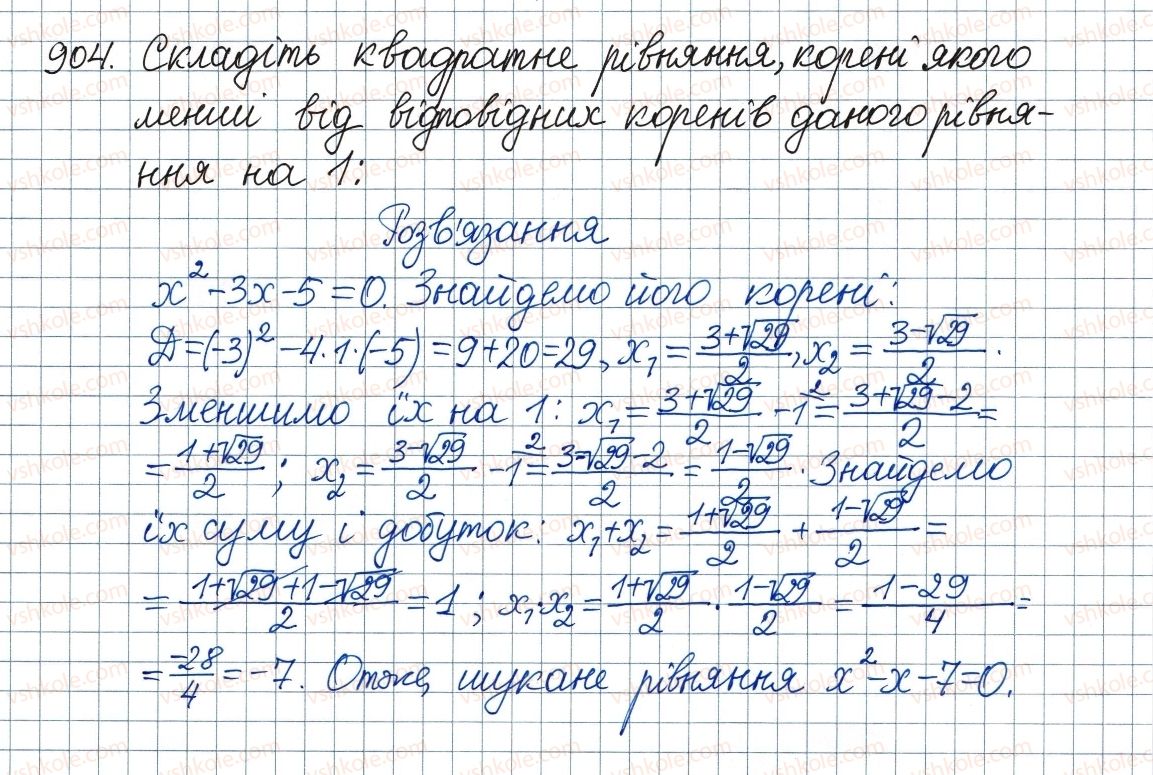 904. Складіть квадратне рівняння, корені якого
менші від відповідних коренів даного рівня-
ння на 1:
Розв'язання
x² - 3x - 5 = 0. Знайдемо його корені:
Д = (-3)² - 4·1·(-5) = 9 + 20 = 29, x₁ = (3+√29)/2, x₂ = (3-√29)/2.
Зменшимо їх на 1: x₁ = (3+√29)/2 - 1 = (3+√29-2)/2 =
= (1+√29)/2; x₂ = (3-√29)/2 - 1 = (3-√29-2)/2 = (1-√29)/2. Знайдемо
їх суму і добуток: x₁+x₂ = (1+√29)/2 + (1-√29)/2 =
= (1+√29+1-√29)/2 = 1; x₁·x₂ = (1+√29)/2 · (1-√29)/2 = (1-29)/4 =
= -28/4 = -7. Отже, шукане рівняння x²-x-7=0.